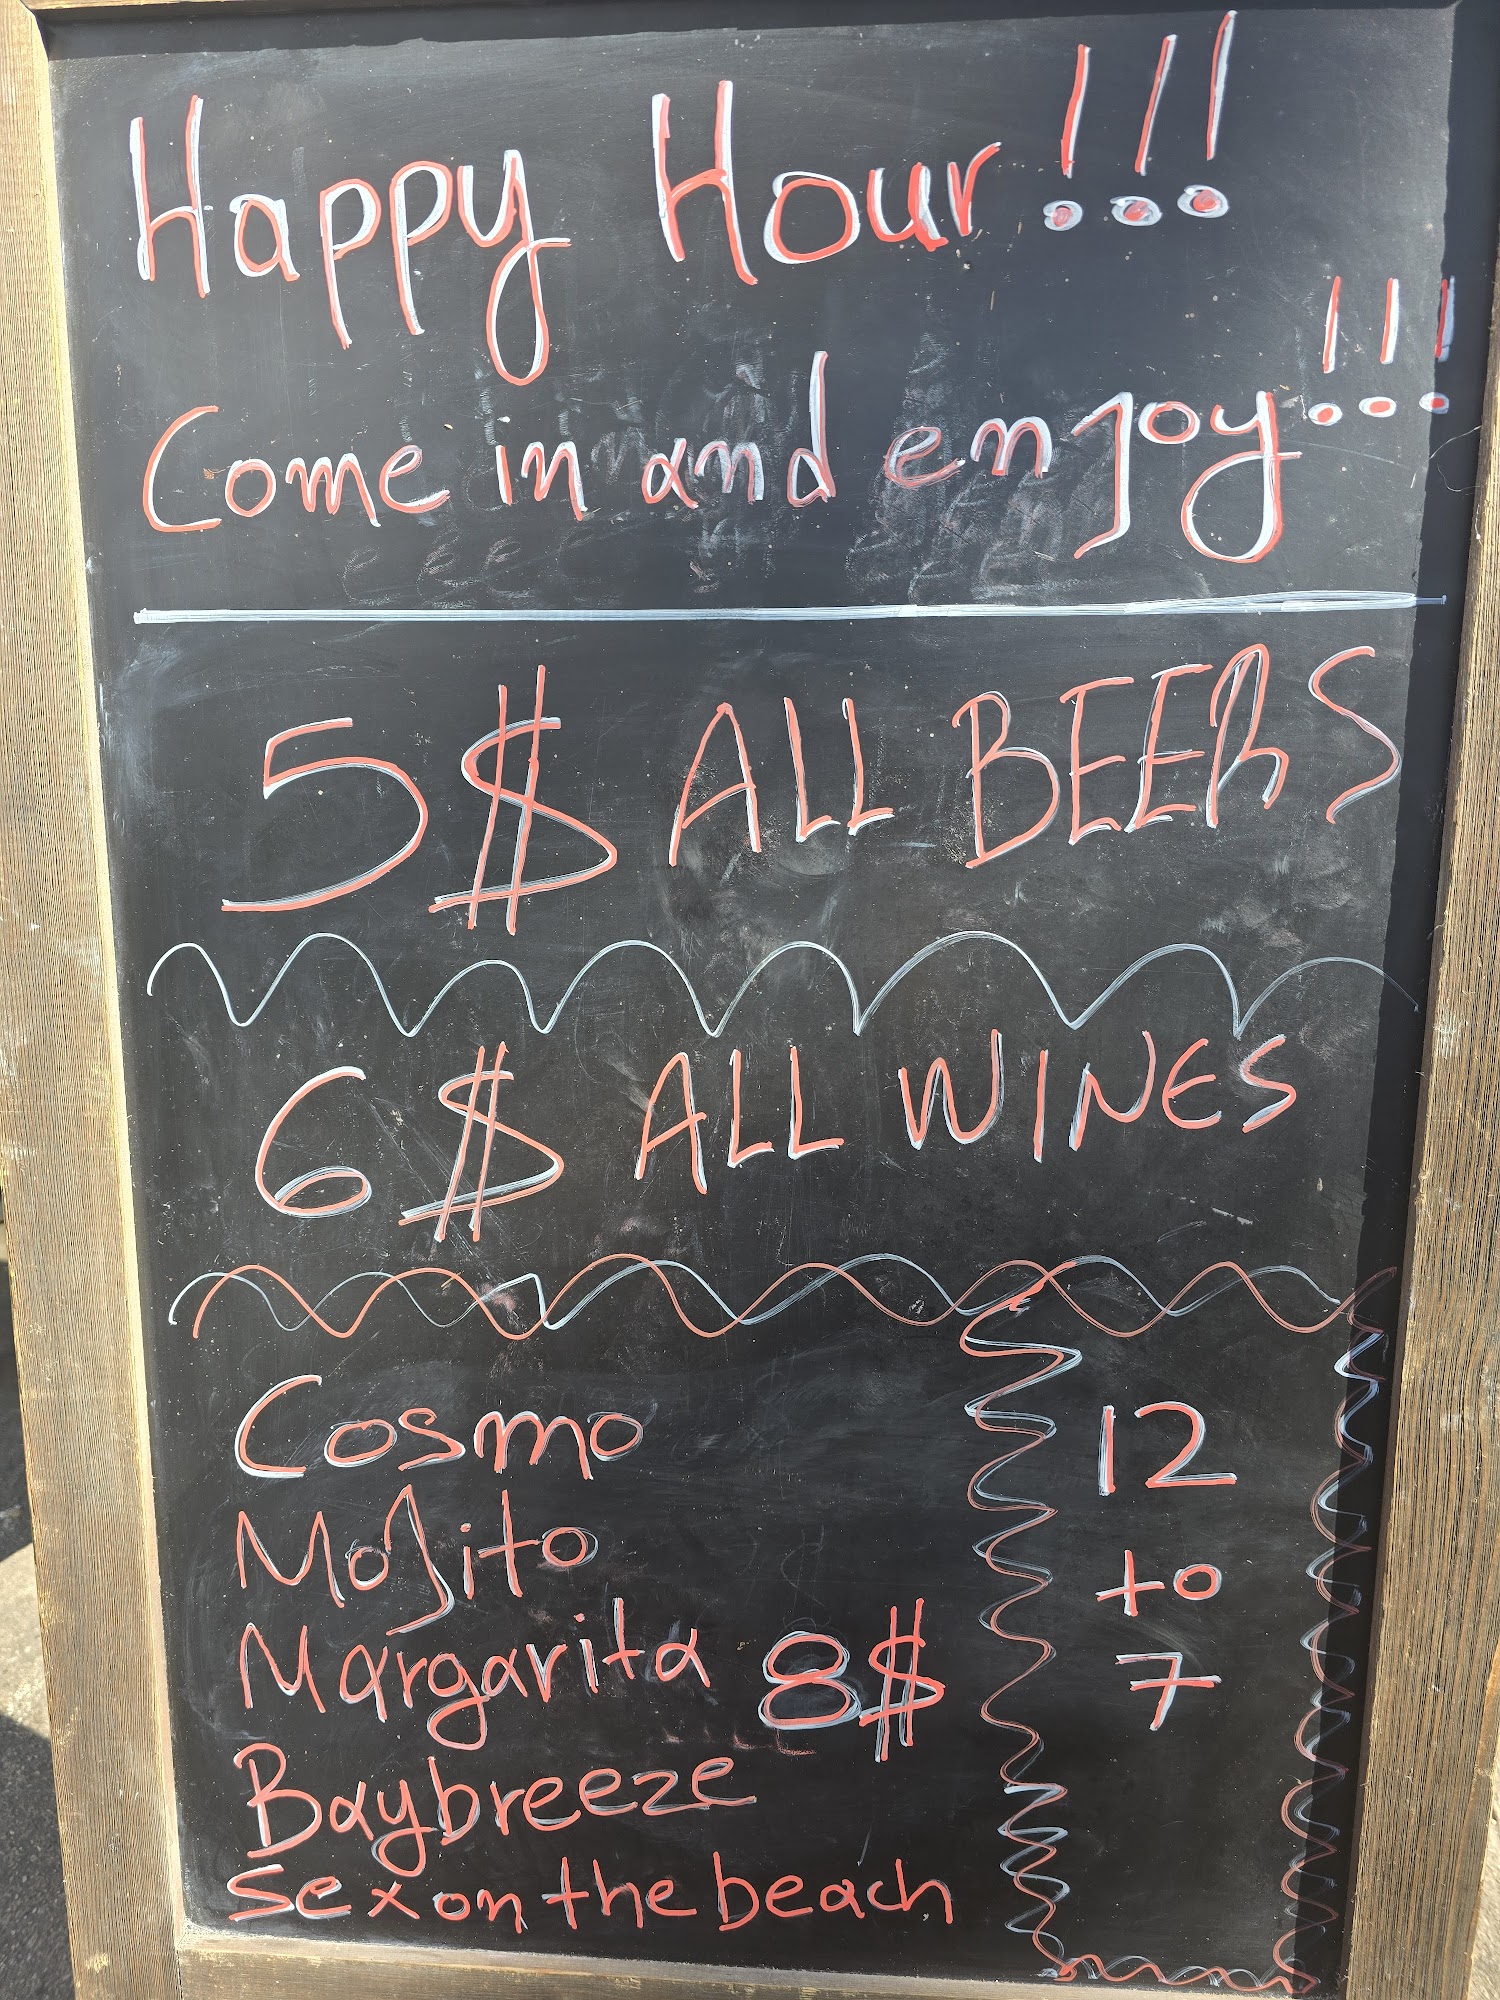 Happy Hour!!!
Come in and enjoy!!!
5$ ALL BEERS
6$ ALL WINES
Cosmo
Mojito
Margarita 8$
Baybreeze
Sex on the beach
12
to
7